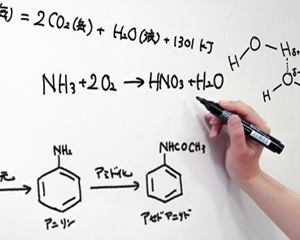 (気) = 2CO₂(気) + H₂O(液) + 1301 kJ
NH₃+2O₂ → HNO₃+H₂O
O H δ+
H O δ-
H
NH₂ NHCOCH₃
アセチル化
アニリン アセトアニリド